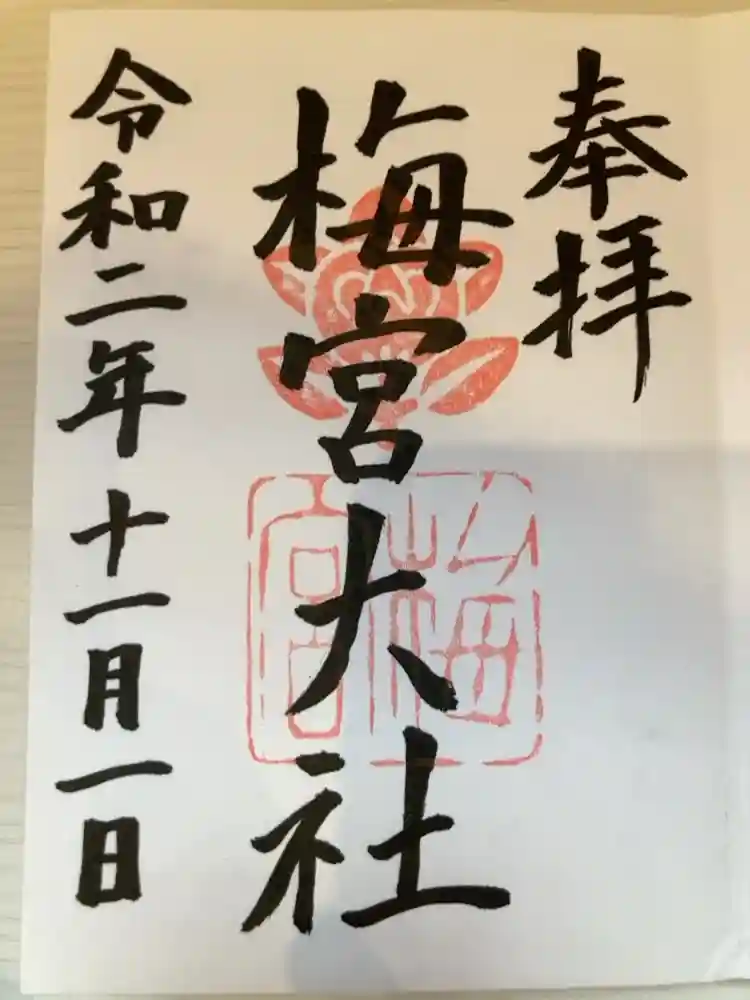 奉拝
梅宮大社
梅宮
令和二年十一月一日